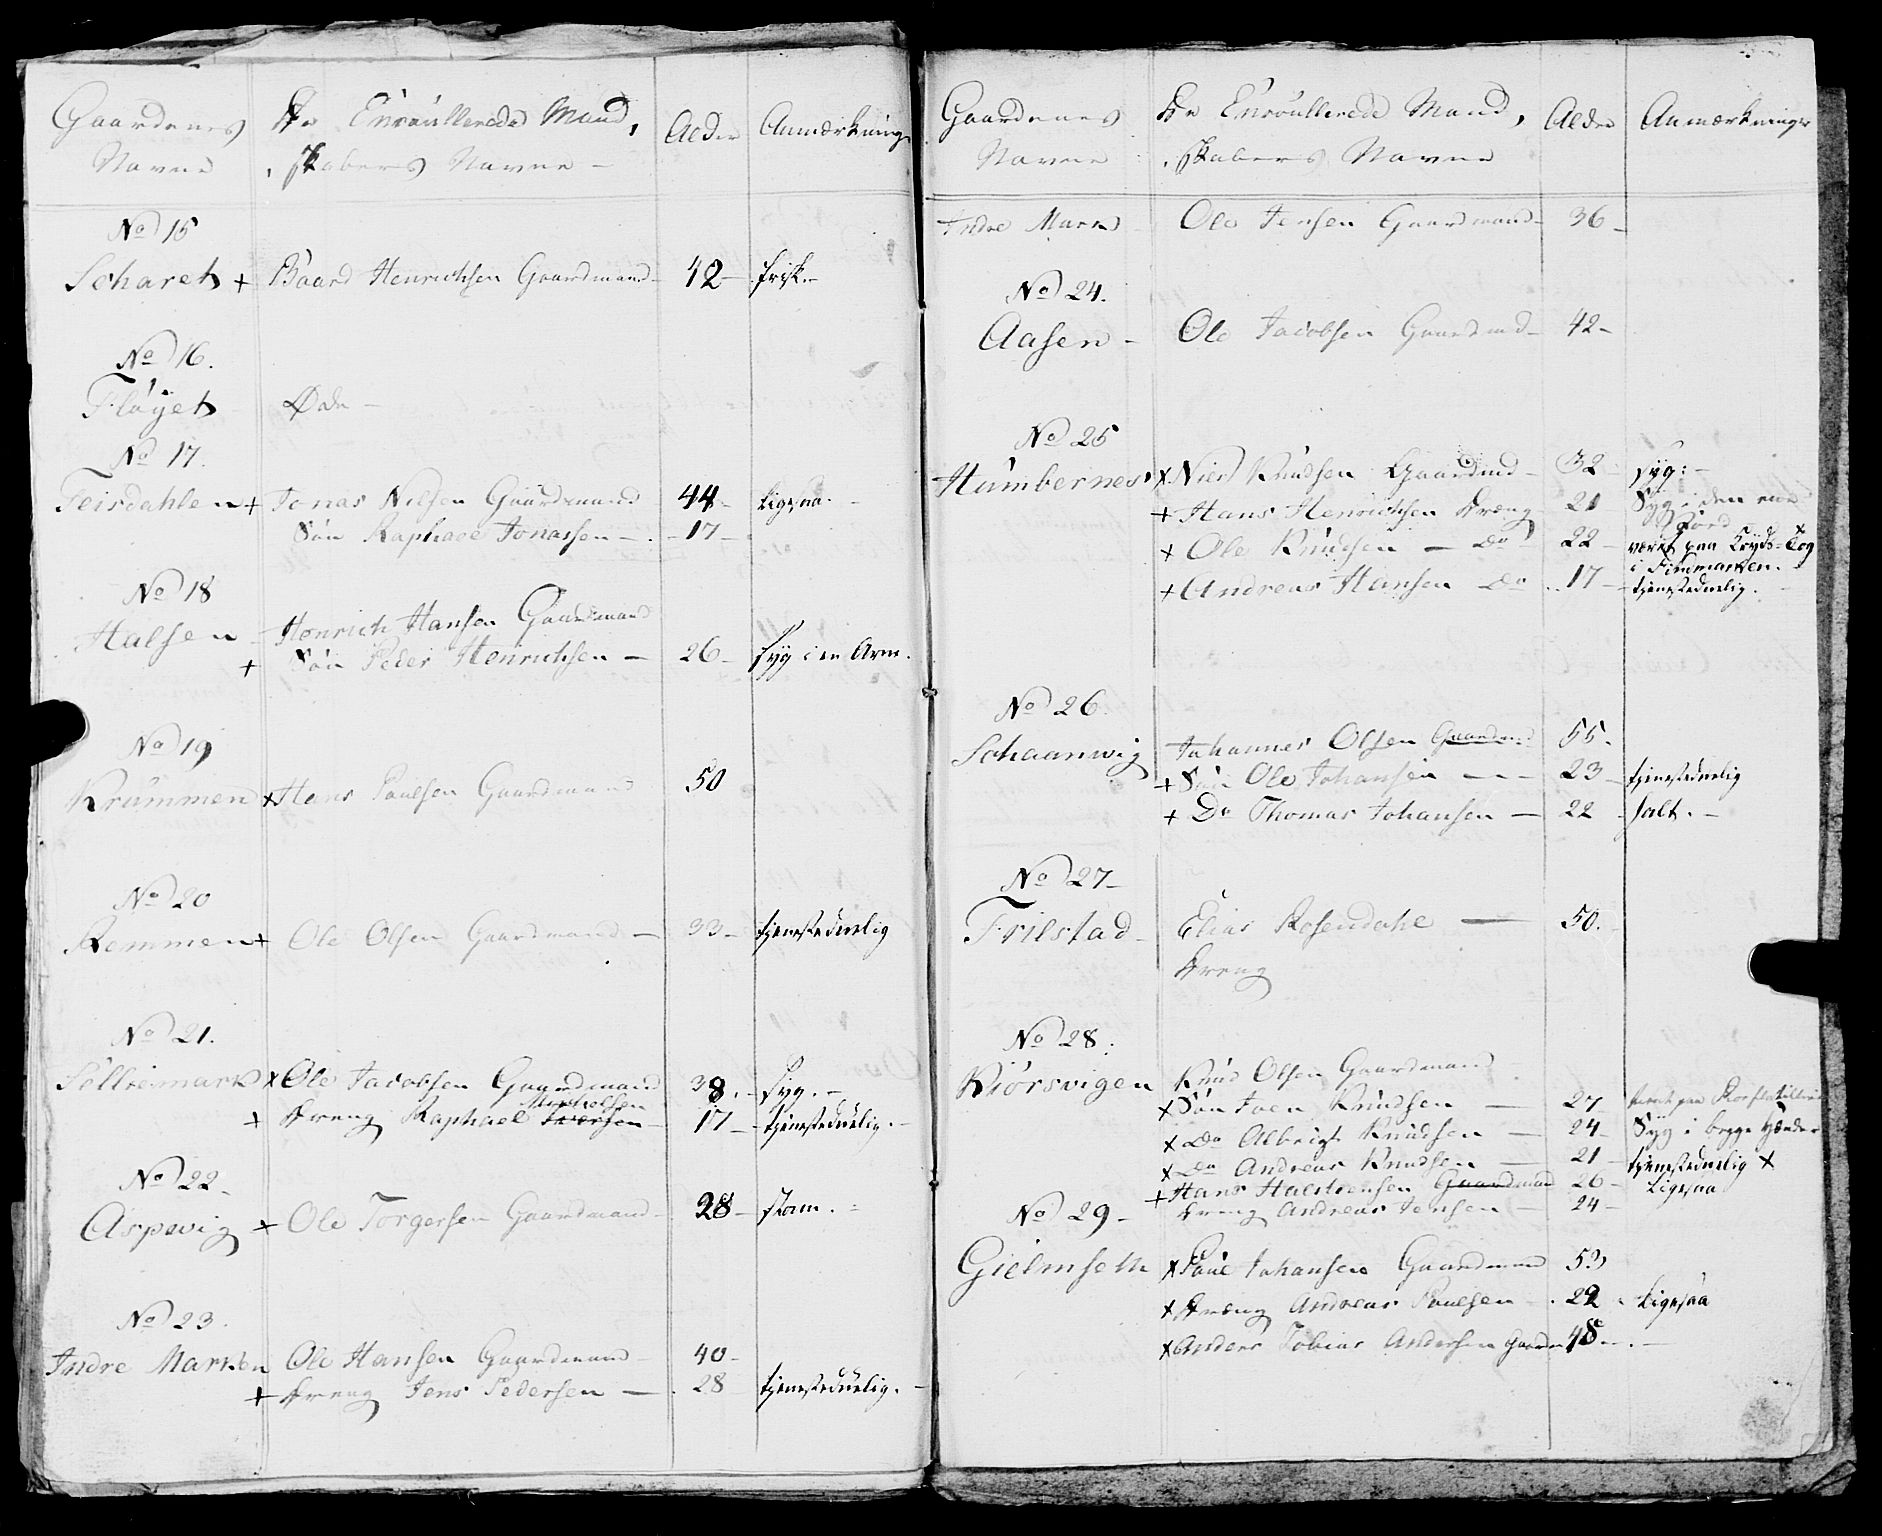 Gaardenes
Navne
De Enroullerede Mand,
skabers Navne –
Alder
Anmærkning
No 15
Scharet + Baard Henrichsen Gaardmand – 42 – frisk –
No 16.
Fløyet Øde –
No 17.
Feisdahlen + Jonas Nilsen Gaardmand 44 – Ligesaa. –
Søn Raphael Jonassen – 17 –
No 18
Halsen – Henrich Hansen Gaardmand
+ Søn Peder Henrichsen – 26 – syg i en Arm.
No 19
Krummen x Hans Paulsen Gaardmand 50
No 20
Remmen + Ole Olsen Gaardmand – 33 – tjenesteduelig
No 21.
Settremark x Ole Jacobsen Gaardmand 38. – syg. –
+ Dreng Raphael Iversen – 17 – tjenesteduelig. –
No 22 –
Aspevig + Ole Torgersen Gaardmand – 28 – stam. –
No 23.
Indre Marken Ole Hansen Gaardmand – 40 –
+ Dreng Jens Pedersen – 28 tjenesteduelig. –
Gaardenes
Navne
De Enroullerede Mand,
skabers Navne
Alder
Anmærkninger
Indre Mark Ole Jensen Gaardmand – 36 –
No 24.
Aasen – Ole Jacobsen Gaardmd – 42 –
No 25
Humbernes x Niels Knudsen Gaardmd – 32 – syg: –
+ Hans Henrichsen Dreng – 21 – Syg i den ene
+ Ole Knudsen – Do 22 – været paa Kryds-Tog
i Finmarken.
+ Andreas Hansen Do 17 – tjenesteduelig.
No 26.
Schaanvig Johannes Olsen Gaardmd 55.
+ Søn Ole Johansen – – 23 – tjenesteduelig
+ Do Thomas Johansen – 22 – halt. –
No 27 –
Frilstad – Elias Rosendahl – 50.
Dreng
No 28.
Kiørsvigen Knud Olsen Gaardmand
x Søn Joen Knudsen – 27 –
x Do Albrigt Knudsen – 24 – Syg i begge Hænder
x Do Andreas Knudsen – 21 – tjenesteduelig x
+ Hans Halstensen Gaardmand 26 – Ligesaa
Dreng Andreas Jensen – 24 –
No 29 –
Gielmseth x Paul Johansen Gaardmand 53
x Dreng Andreas Paulsen – 22 – Ligesaa
x Anders Tobias Andersen 48 –